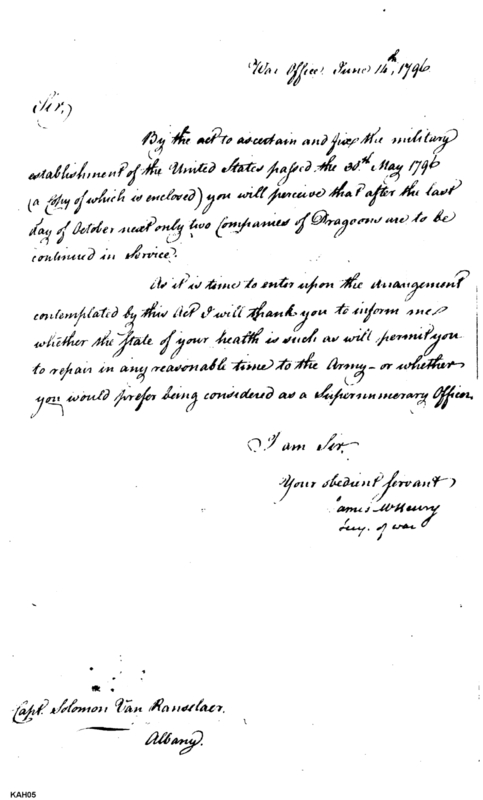 War Office June 14th, 1796
Sir,
By the act to ascertain and fix the military
establishment of the United States passed the 30th May 1796
(a Copy of which is enclosed) you will perceive that after the last
day of October next only two Companies of Dragoons are to be
continued in Service.
As it is time to enter upon the arrangement
contemplated by this Act I will thank you to inform me
whether the State of your health is such as will permit you
to repair in any reasonable time to the Army - or whether
you would prefer being considered as a Supernumerary Officer.
I am Sir,
Your obedient Servant
James McHenry
Secy. of war
Capt. Solomon Van Ranselaer.
Albany.
KAH05